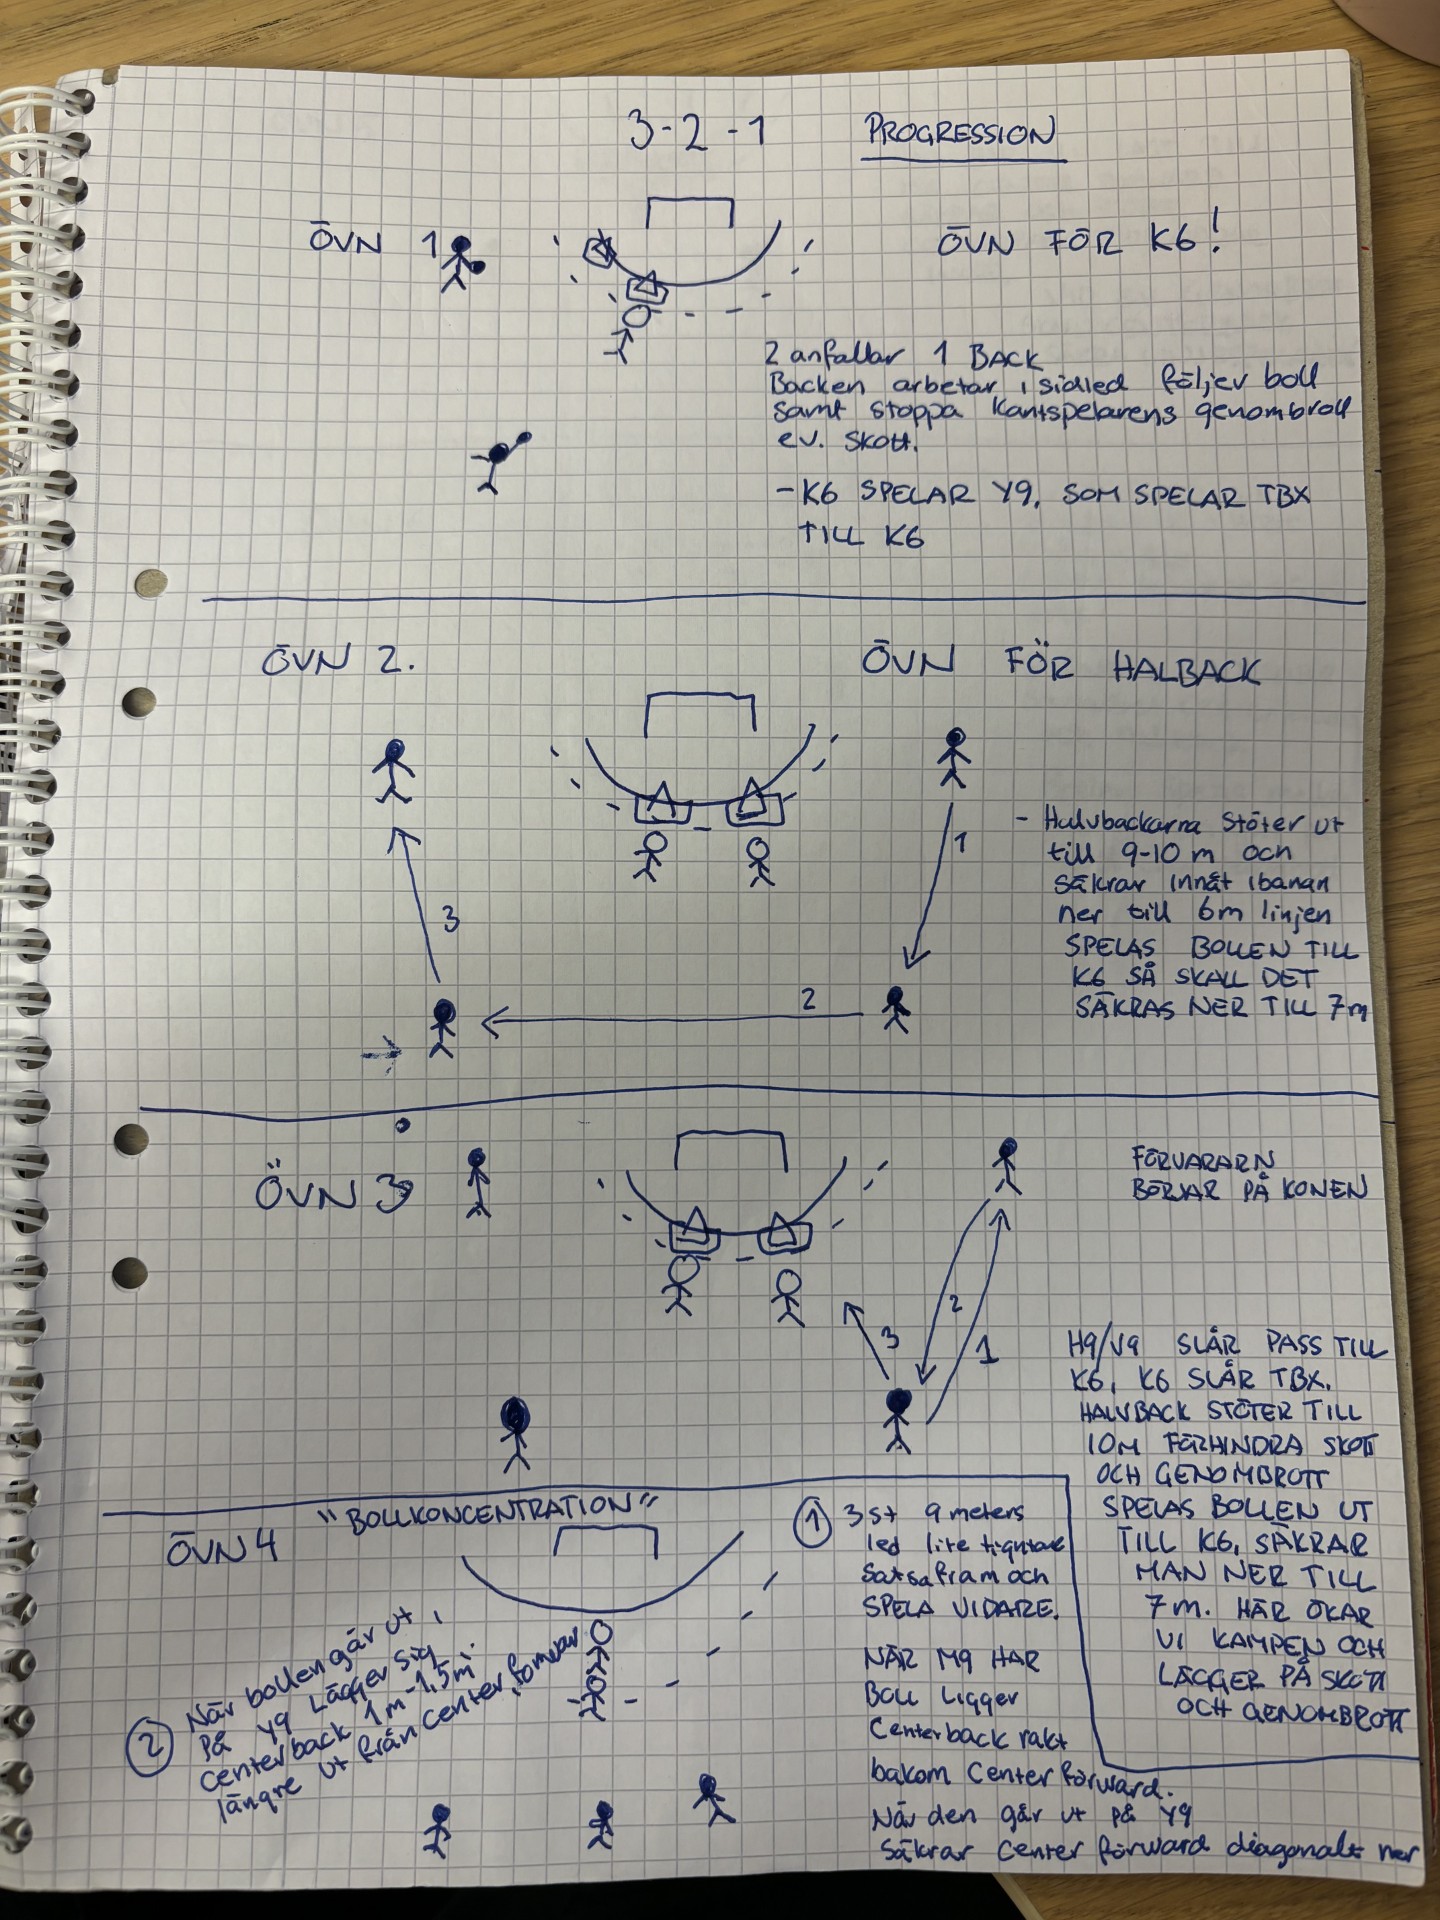 3-2-1 PROGRESSION
ÖVN 1
ÖVN FÖR K6!
2 anfallar 1 BACK
Backen arbetar i sidled följer boll
samt stoppa kantspelarens genombrott
ev. skott.
-K6 SPELAR Y9, SOM SPELAR TBX
TILL K6
ÖVN 2.
ÖVN FÖR HALBACK
1
2
3
- Halvbackarna stöter ut
till 9-10 m och
säkrar innåt ibanan
ner till 6m linjen
SPELAS BOLLEN TILL
K6 SÅ SKALL DET
SÄKRAS NER TILL 7m
ÖVN 3
FÖRVARARN
BÖRJAR PÅ KONEN
2
3
1
H9/V9 SLÅR PASS TILL
K6, K6 SLÅR TBX.
HALVBACK STÖTER TILL
10M FÖRHINDRA SKOTT
OCH GENOMBROTT
SPELAS BOLLEN UT
TILL K6, SÄKRAR
MAN NER TILL
7m. HÄR ÖKAR
VI KAMPEN OCH
LÄGGER PÅ SKOTT
OCH GENOMBROTT
ÖVN 4
"BOLLKONCENTRATION"
1 3st 9 meters
led lite tightare
satsa fram och
SPELA VIDARE.
NÄR M9 HAR
Boll ligger
Centerback rakt
bakom Center förward.
När den går ut på Y9
säkrar Center förward diagonalt ner
2 När bollen går ut
på Y9 Lägger sig
centerback 1m-1,5m
längre ut från center förward